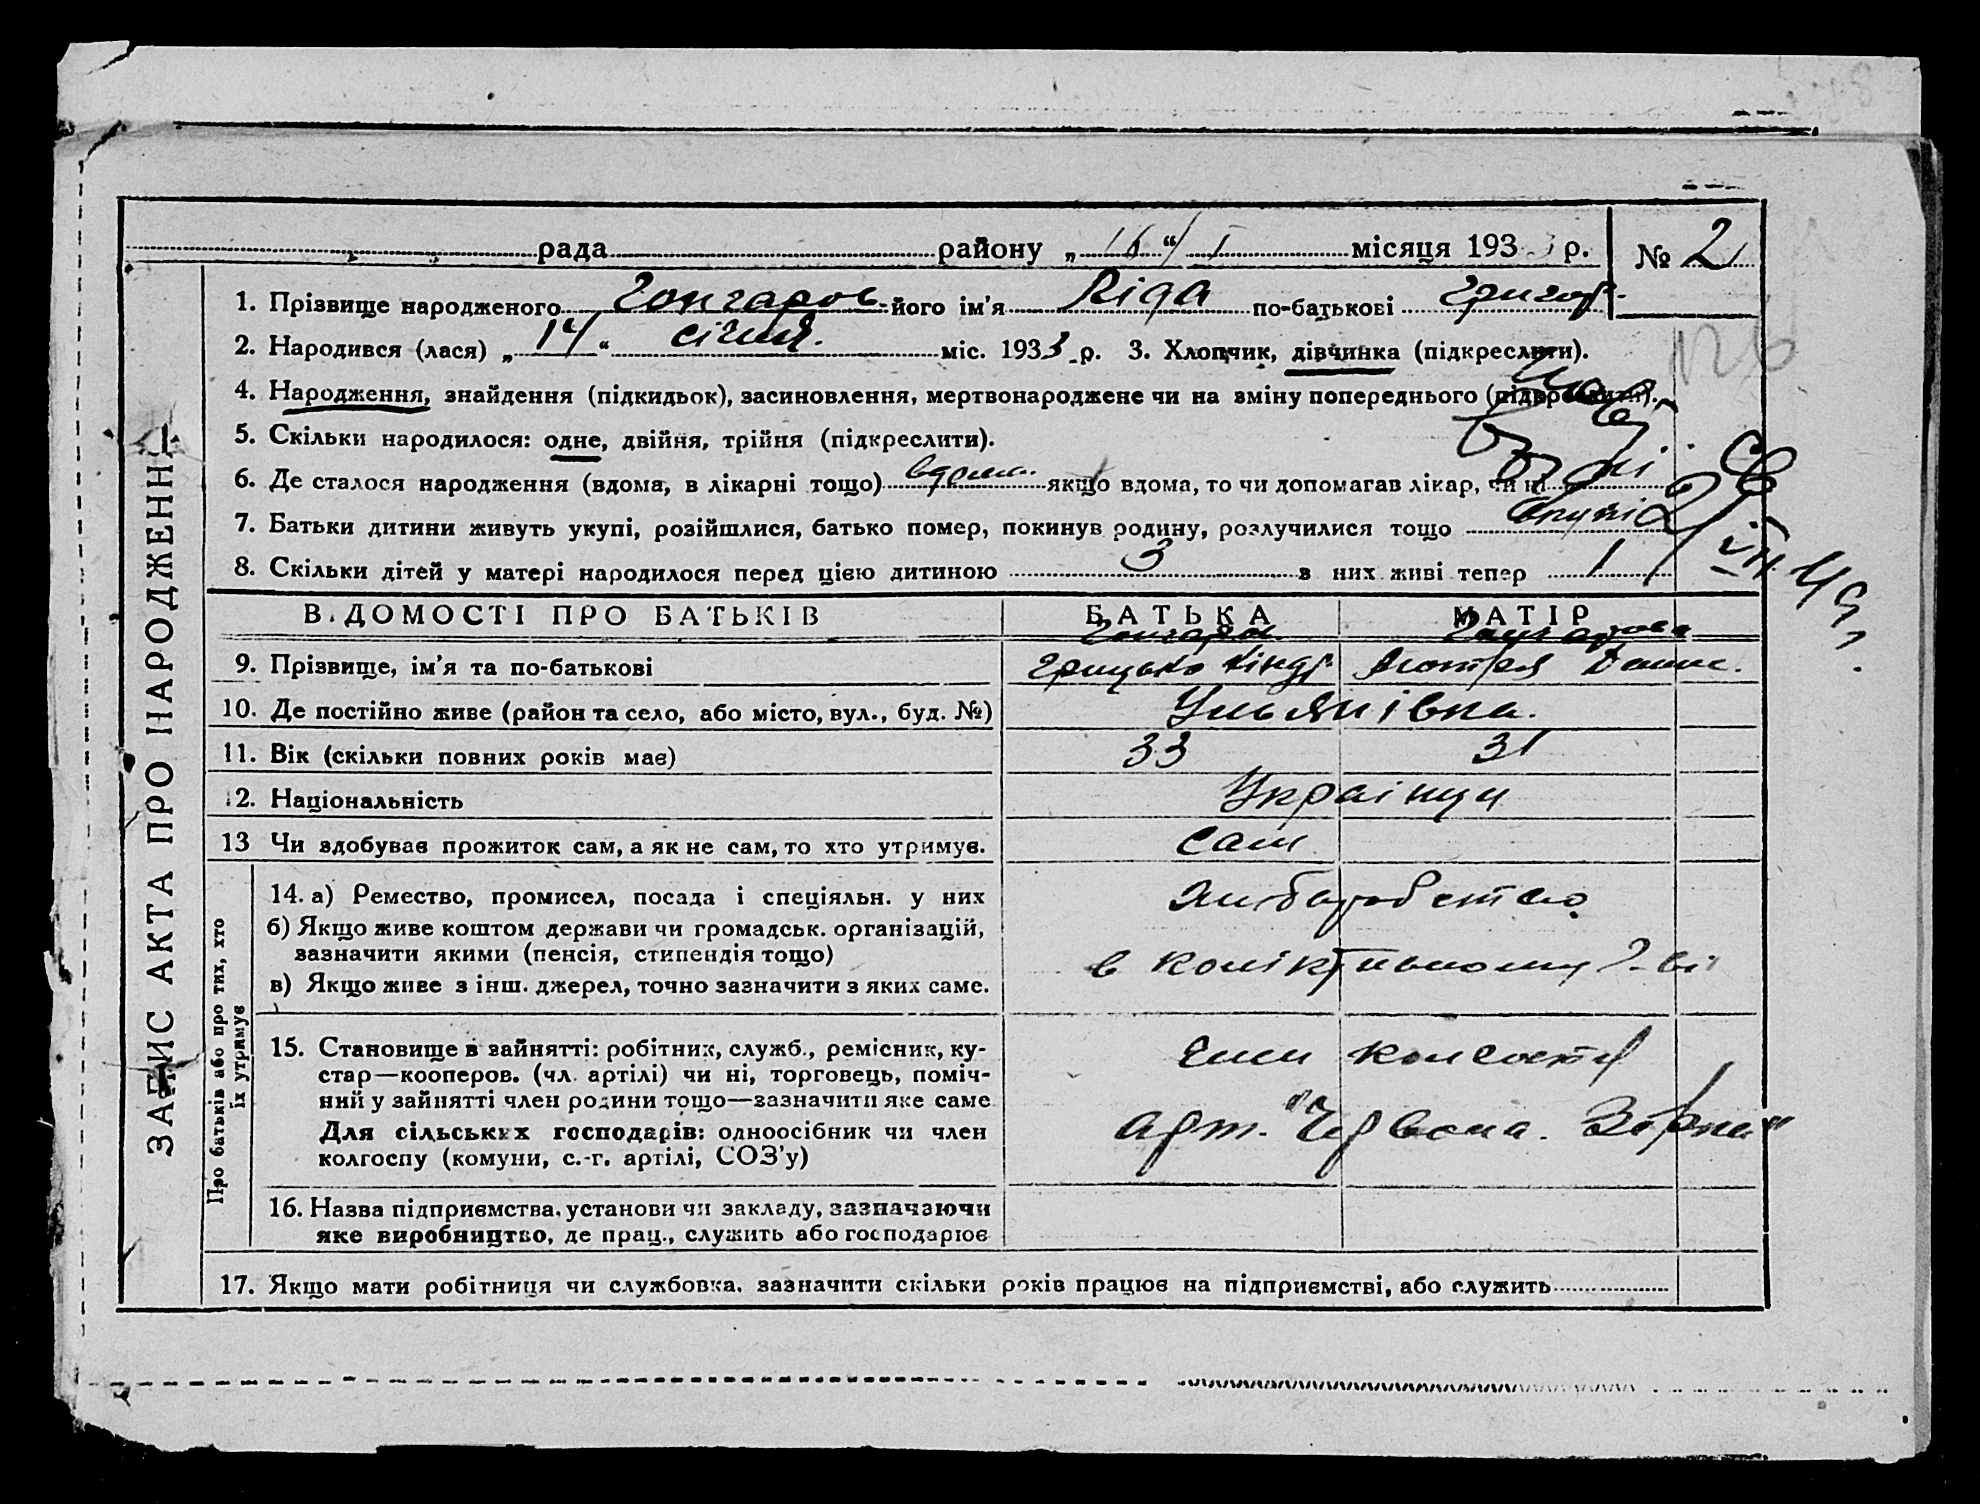 рада района „16“/I місяця 1933 р. № 2
1. Прізвище народженого Гончаров його ім'я Ліда по-батькові Григор.
2. Народився (лася) „14“ січня. міс. 1933 р. 3. Хлопчик, дівчинка (підкреслити).
4. Народження, знайдення (підкидьок), засиновлення, мертвонароджене чи на зміну попереднього (підкреслити).
5. Скільки народилося: одне, двійня, трійня (підкреслити).
6. Де сталося народження (вдома, в лікарні тощо) вдома. якщо вдома, то чи допомагав лікар, чи ні ні
7. Батьки дитини живуть укупі, розійшлися, батько помер, покинув родину, розлучилися тощо вкупі
8. Скільки дітей у матері народилося перед цією дитиною 3 з них живі тепер 1
СВ
VII 49 р.
ЗАПИС АКТА ПРО НАРОДЖЕННЯ
ВІДОМОСТІ ПРО БАТЬКІВ БАТЬКА МАТІР
Гончаров Гончарова
9. Прізвище, ім'я та по-батькові Грицько Кіндр. Мотря Денис.
10. Де постійно живе (район та село, або місто, вул., буд. №) Ульянівка.
11. Вік (скільки повних років має) 33 31
12. Національність Українці
13 Чи здобуває прожиток сам, а як не сам, то хто утримує. сам
Про батьків або про тих, хто їх утримує
14. а) Ремество, промисел, посада і спеціяльн. у них хліборобство
б) Якщо живе коштом держави чи громадськ. організацій,
зазначити якими (пенсія, стипендія тощо) в
в) Якщо живе з інш. джерел, точно зазначити з яких саме.
15. Становище в зайнятті: робітник, служб., ремісник, ку-
стар—кооперов. (чл. артілі) чи ні, торговець, поміч-
ний у зайнятті член родини тощо—зазначити яке саме
член колгоспу
Для сільських господарів: одноосібник чи член
колгоспу (комуни, с.-г. артілі, СОЗ'у)
арт. "Червона. Зірка"
16. Назва підприємства, установи чи закладу, зазначаючи
яке виробництво, де прац., служить або господарює
17. Якщо мати робітниця чи службовка, зазначити скільки років працює на підприємстві, або служить